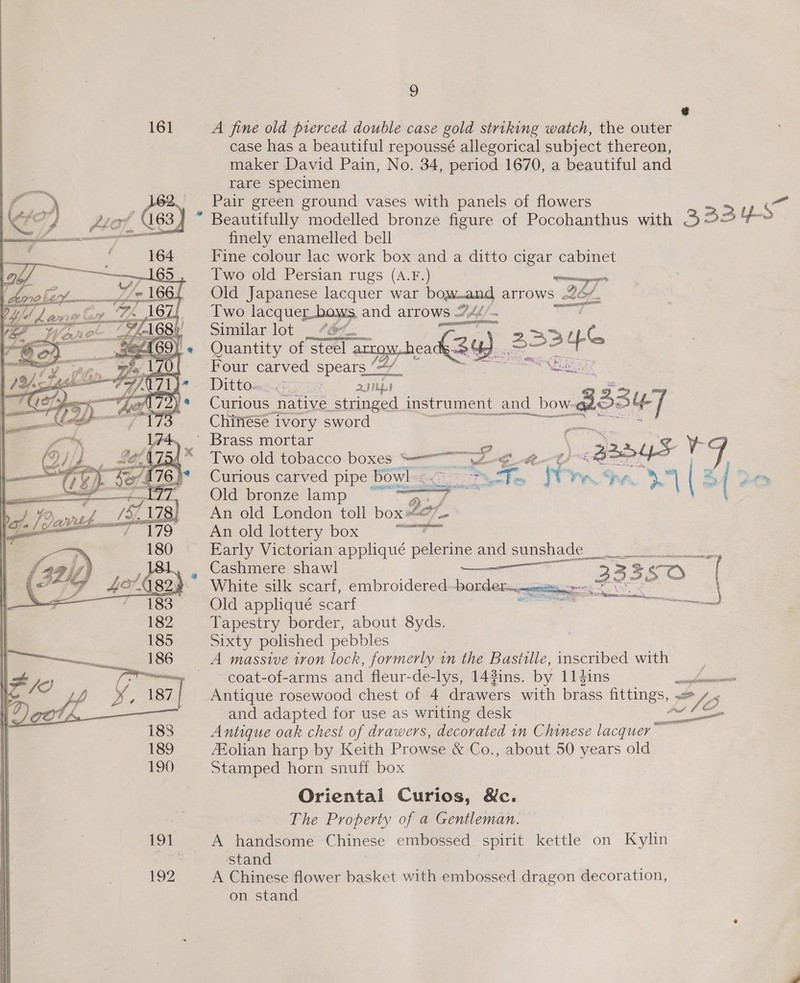 9
161 A fine old pierced double case gold striking watch, the outer
case has a beautiful repoussé allegorical subject thereon,
maker David Pain, No. 34, period 1670, a beautiful and
rare specimen
162 Pair green ground vases with panels of flowers
163 * Beautifully modelled bronze figure of Pocohanthus with 33345
finely enamelled bell
164 Fine colour lac work box and a ditto cigar cabinet
165 Two old Persian rugs (A.F.)
166 Old Japanese lacquer war bow and arrows
167 Two lacquer bows and arrows
168 Similar lot
169 * Quantity of steel arrow heads 34) 33346
170 Four carved spears
171 * Ditto
172 * Curious native stringed instrument and bow 33347
173 Chinese ivory sword
174 Brass mortar
175 * Two old tobacco boxes
176 * Curious carved pipe bowl
177 Old bronze lamp
178 An old London toll box
179 An old lottery box
180 Early Victorian appliqué pelerine and sunshade
181 Cashmere shawl 33350
182 * White silk scarf, embroidered border
183 Old appliqué scarf
182 Tapestry border, about 8yds.
185 Sixty polished pebbles
186 A massive iron lock, formerly in the Bastille, inscribed with
coat-of-arms and fleur-de-lys, 14¾ins. by 11½ins
187 Antique rosewood chest of 4 drawers with brass fittings,
and adapted for use as writing desk
183 Antique oak chest of drawers, decorated in Chinese lacquer
189 Æolian harp by Keith Prowse & Co., about 50 years old
190 Stamped horn snuff box
Oriental Curios, &c.
The Property of a Gentleman.
191 A handsome Chinese embossed spirit kettle on Kylin
stand
192 A Chinese flower basket with embossed dragon decoration,
on stand